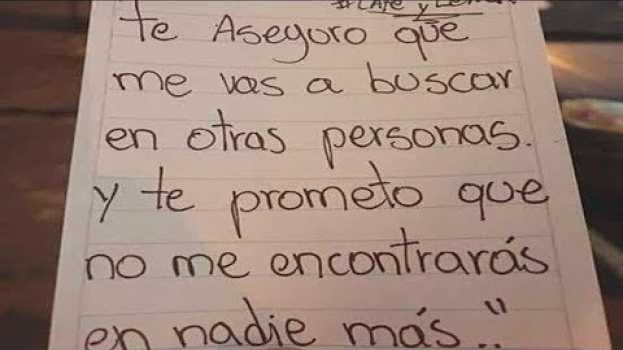 te Aseguro que
me vas a buscar
en otras personas.
y te prometo que
no me encontrarás
en nadie más."